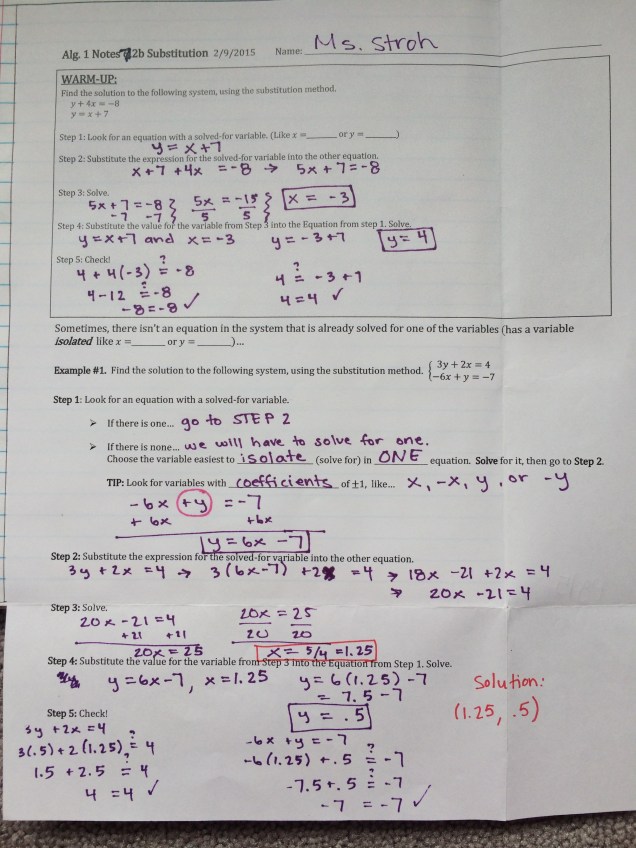 Ms. Stroh
Alg. 1 Notes 7.2b Substitution 2/9/2015 Name:
WARM-UP:
Find the solution to the following system, using the substitution method.
y + 4x = −8
y = x + 7
Step 1: Look for an equation with a solved-for variable. (Like x =______ or y = ______)
y = x+7
Step 2: Substitute the expression for the solved-for variable into the other equation.
x+7 +4x = -8 → 5x +7=-8
Step 3: Solve.
5x+7=-8 } 5x = -15 } x = -3
-7 -7 } 5 5 }
Step 4: Substitute the value for the variable from Step 3 into the Equation from step 1. Solve.
y=x+7 and x=-3 y=-3+7 y=4
Step 5: Check!
4 + 4(-3) ?= -8 4 ?= -3+7
4-12 ?= -8 4=4 ✓
-8=-8 ✓
Sometimes, there isn't an equation in the system that is already solved for one of the variables (has a variable
isolated like x =______ or y = ______)...
Example #1. Find the solution to the following system, using the substitution method. { 3y + 2x = 4
−6x + y = −7
Step 1: Look for an equation with a solved-for variable.
➢ If there is one... go to STEP 2
➢ If there is none... we will have to solve for one.
Choose the variable easiest to isolate (solve for) in ONE equation. Solve for it, then go to Step 2.
TIP: Look for variables with coefficients of ±1, like... x, -x, y, or -y
-6x +y = -7
+6x +6x
y=6x-7
Step 2: Substitute the expression for the solved-for variable into the other equation.
3y+2x=4 → 3(6x-7) +2x =4 → 18x -21 +2x = 4
→ 20x -21=4
Step 3: Solve.
20x -21=4 20x = 25
+21 +21 20 20
20x=25 x= 5/4 =1.25
Step 4: Substitute the value for the variable from Step 3 into the Equation from Step 1. Solve.
y=6x-7, x=1.25 y=6(1.25)-7 Solution:
= 7.5-7 (1.25, .5)
y= .5
Step 5: Check!
3y +2x =4 -6x +y=-7
3(.5)+2(1.25) ?= 4 -6(1.25)+.5 ?= -7
1.5 +2.5 ?= 4 -7.5+.5 ?= -7
4 =4 ✓ -7 = -7 ✓